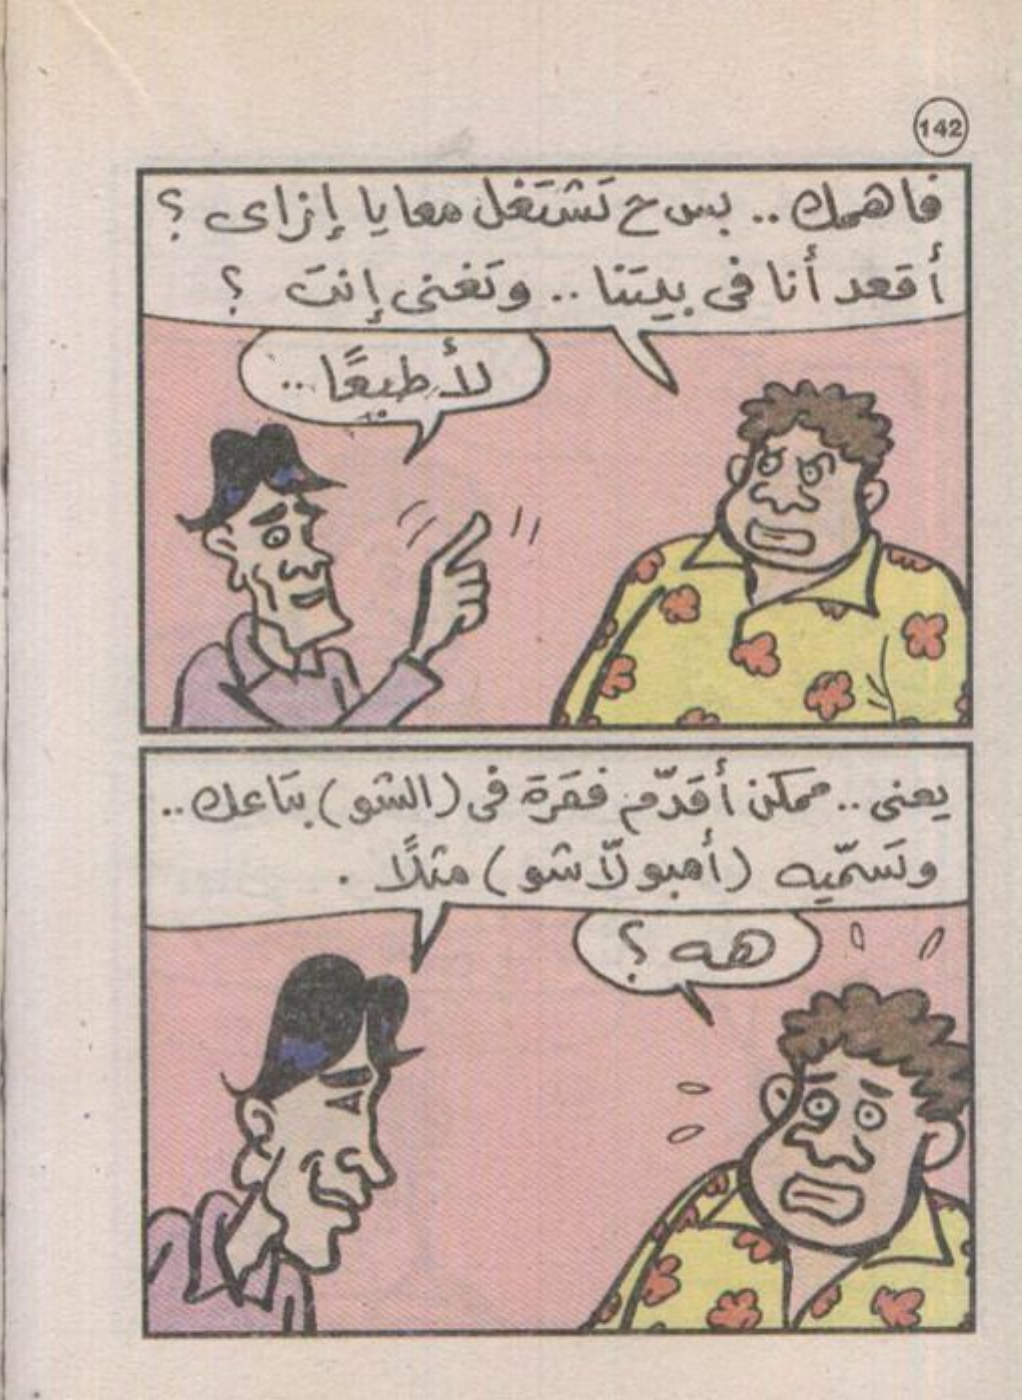 142
فاهمك .. بس ح تَشتَغل معايا إزاى ؟
أقعد أنا فى بيتنا .. وتَغنى إنتَ ؟
لأ طبعًا ...
يعنى .. ممكن أقدّم فقرة فى (الشو) بتاعك ..
وتسمّيه (أمبولاّ شو) مثلًا .
هه ؟